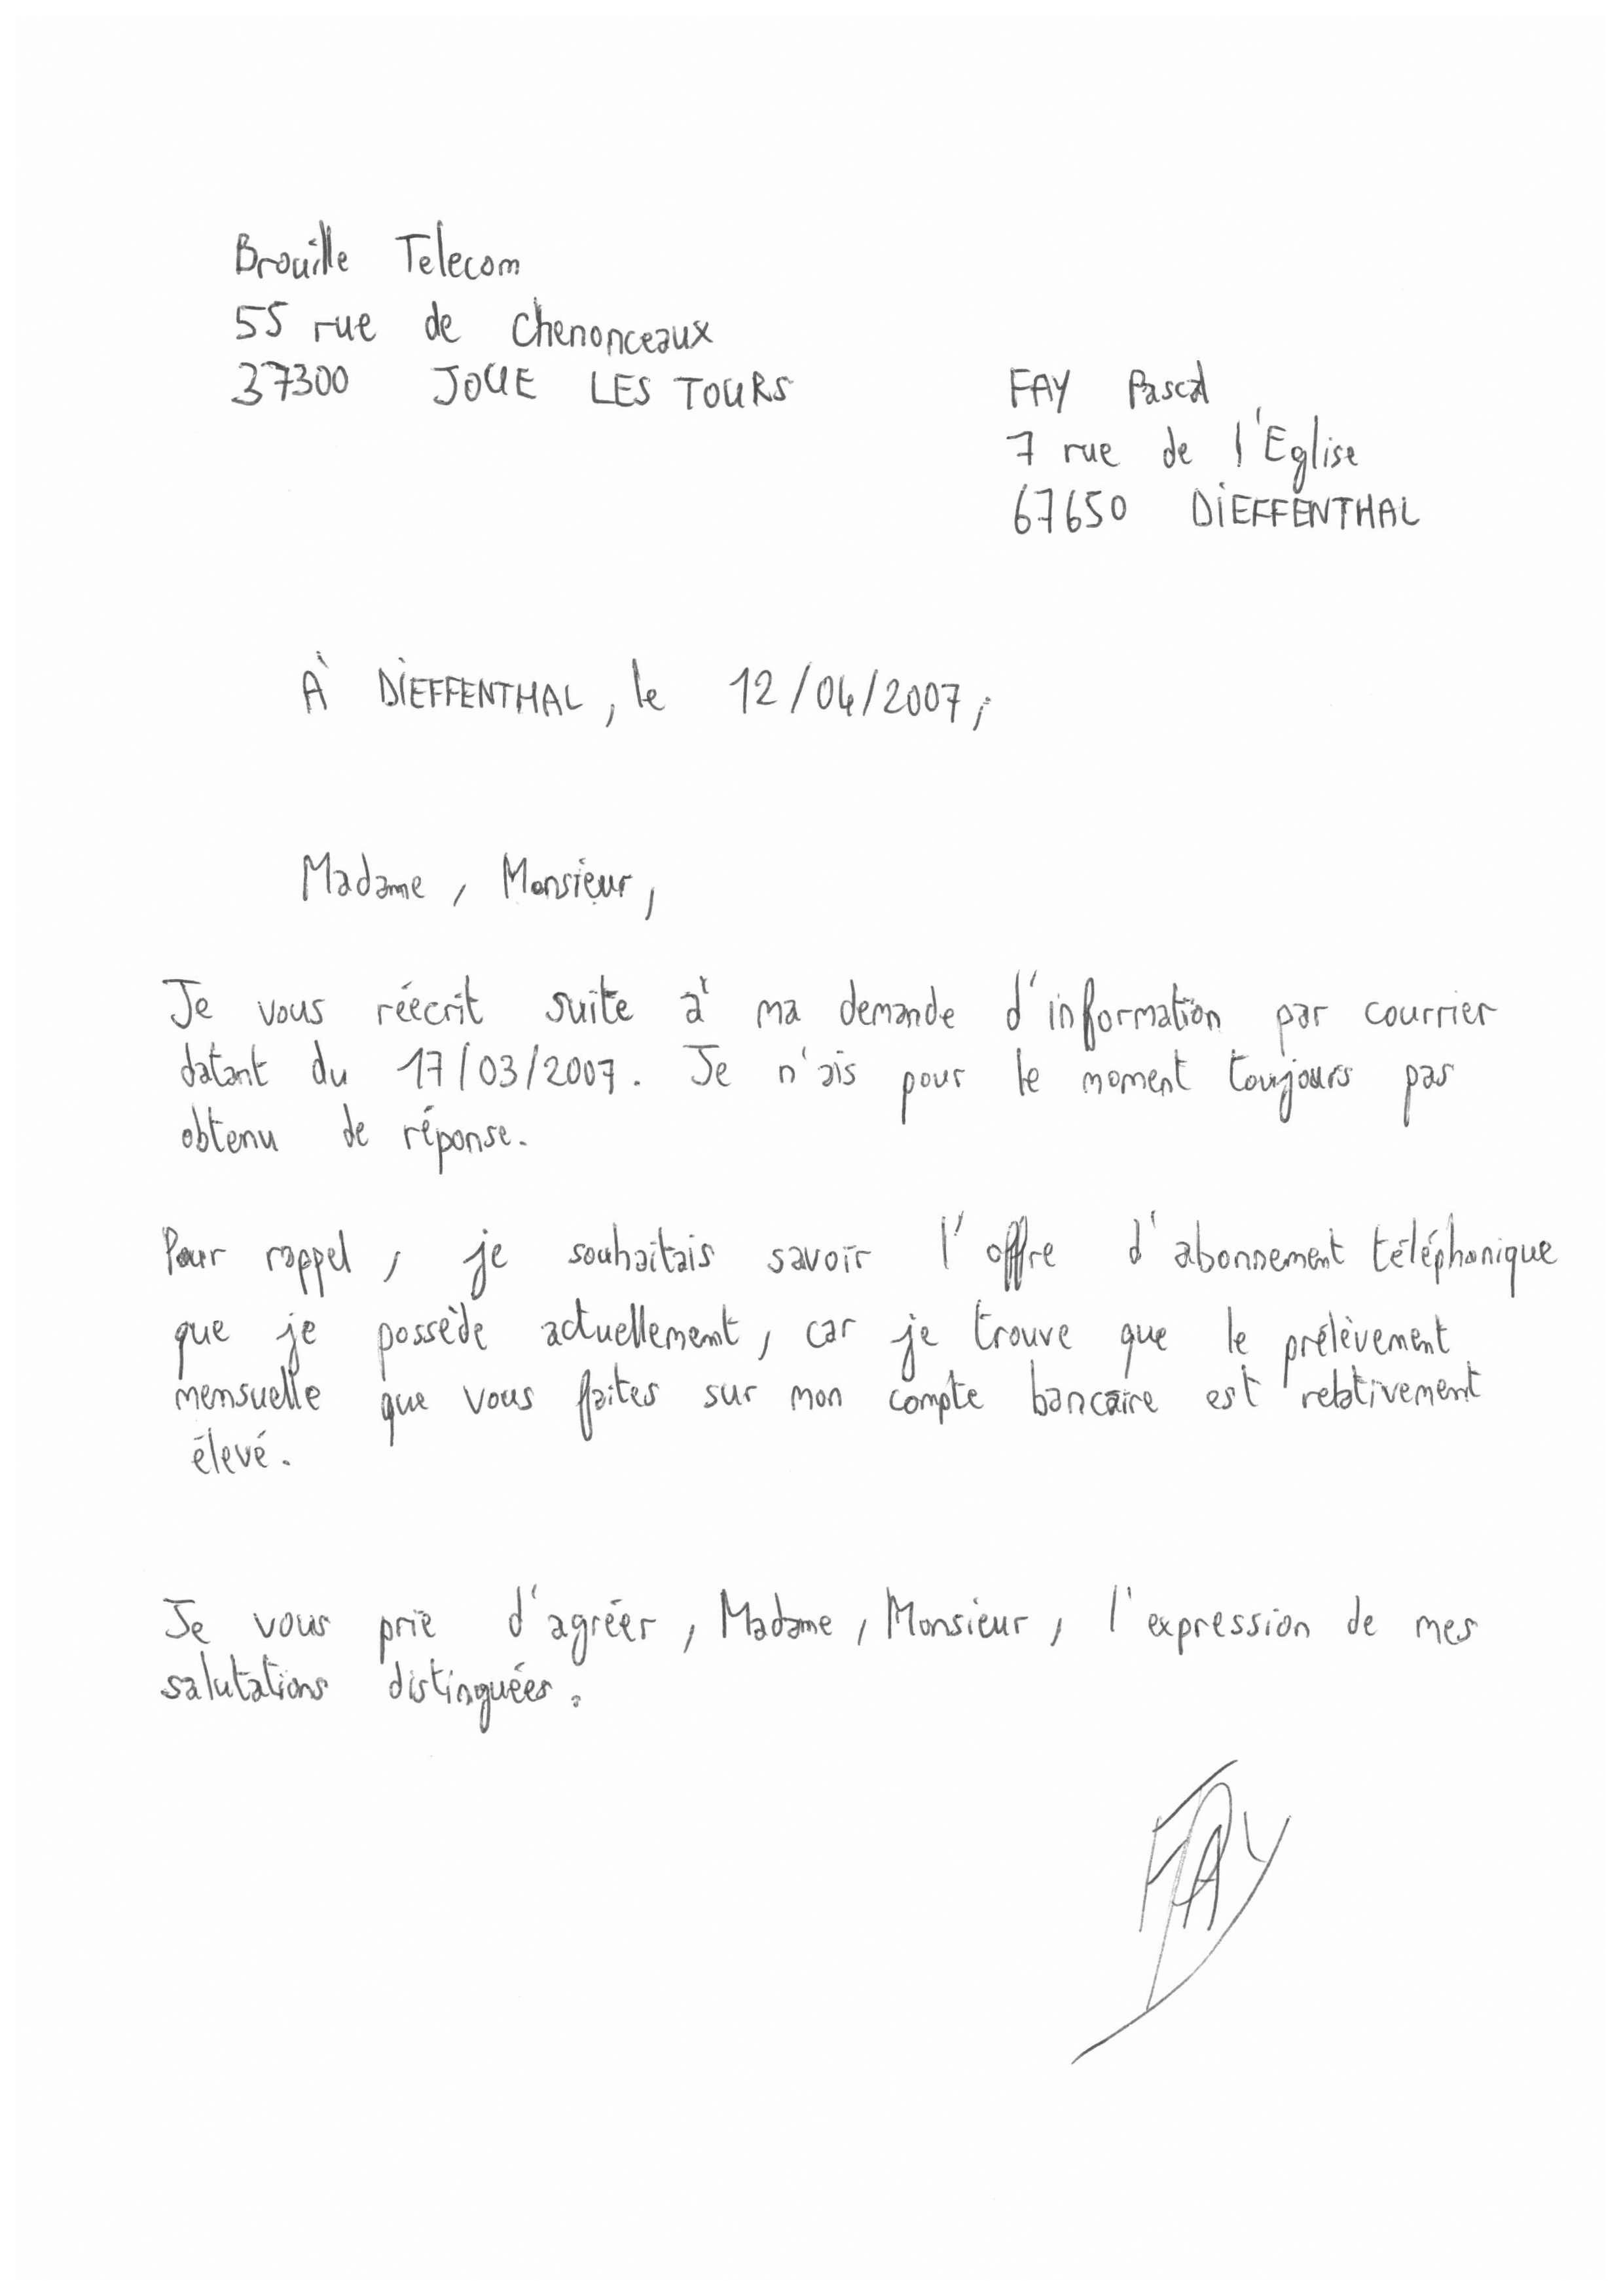 Brouille Telecom
55 rue de Chenonceaux
37300 JOUE LES TOURS
FAY Pascal
7 rue de l'Eglise
67650 DIEFFENTHAL
À DIEFFENTHAL, le 12/04/2007,
Madame, Monsieur,
Je vous réécrit suite à ma demande d'information par courrier
datant du 17/03/2007. Je n'ais pour le moment toujours pas
obtenu de réponse.
Pour rappel, je souhaitais savoir l'offre d'abonnement téléphonique
que je possède actuellement, car je trouve que le prélèvement
mensuelle que vous faites sur mon compte bancaire est relativement
élevé.
Je vous prie d'agréer, Madame, Monsieur, l'expression de mes
salutations distinguées.
FAY